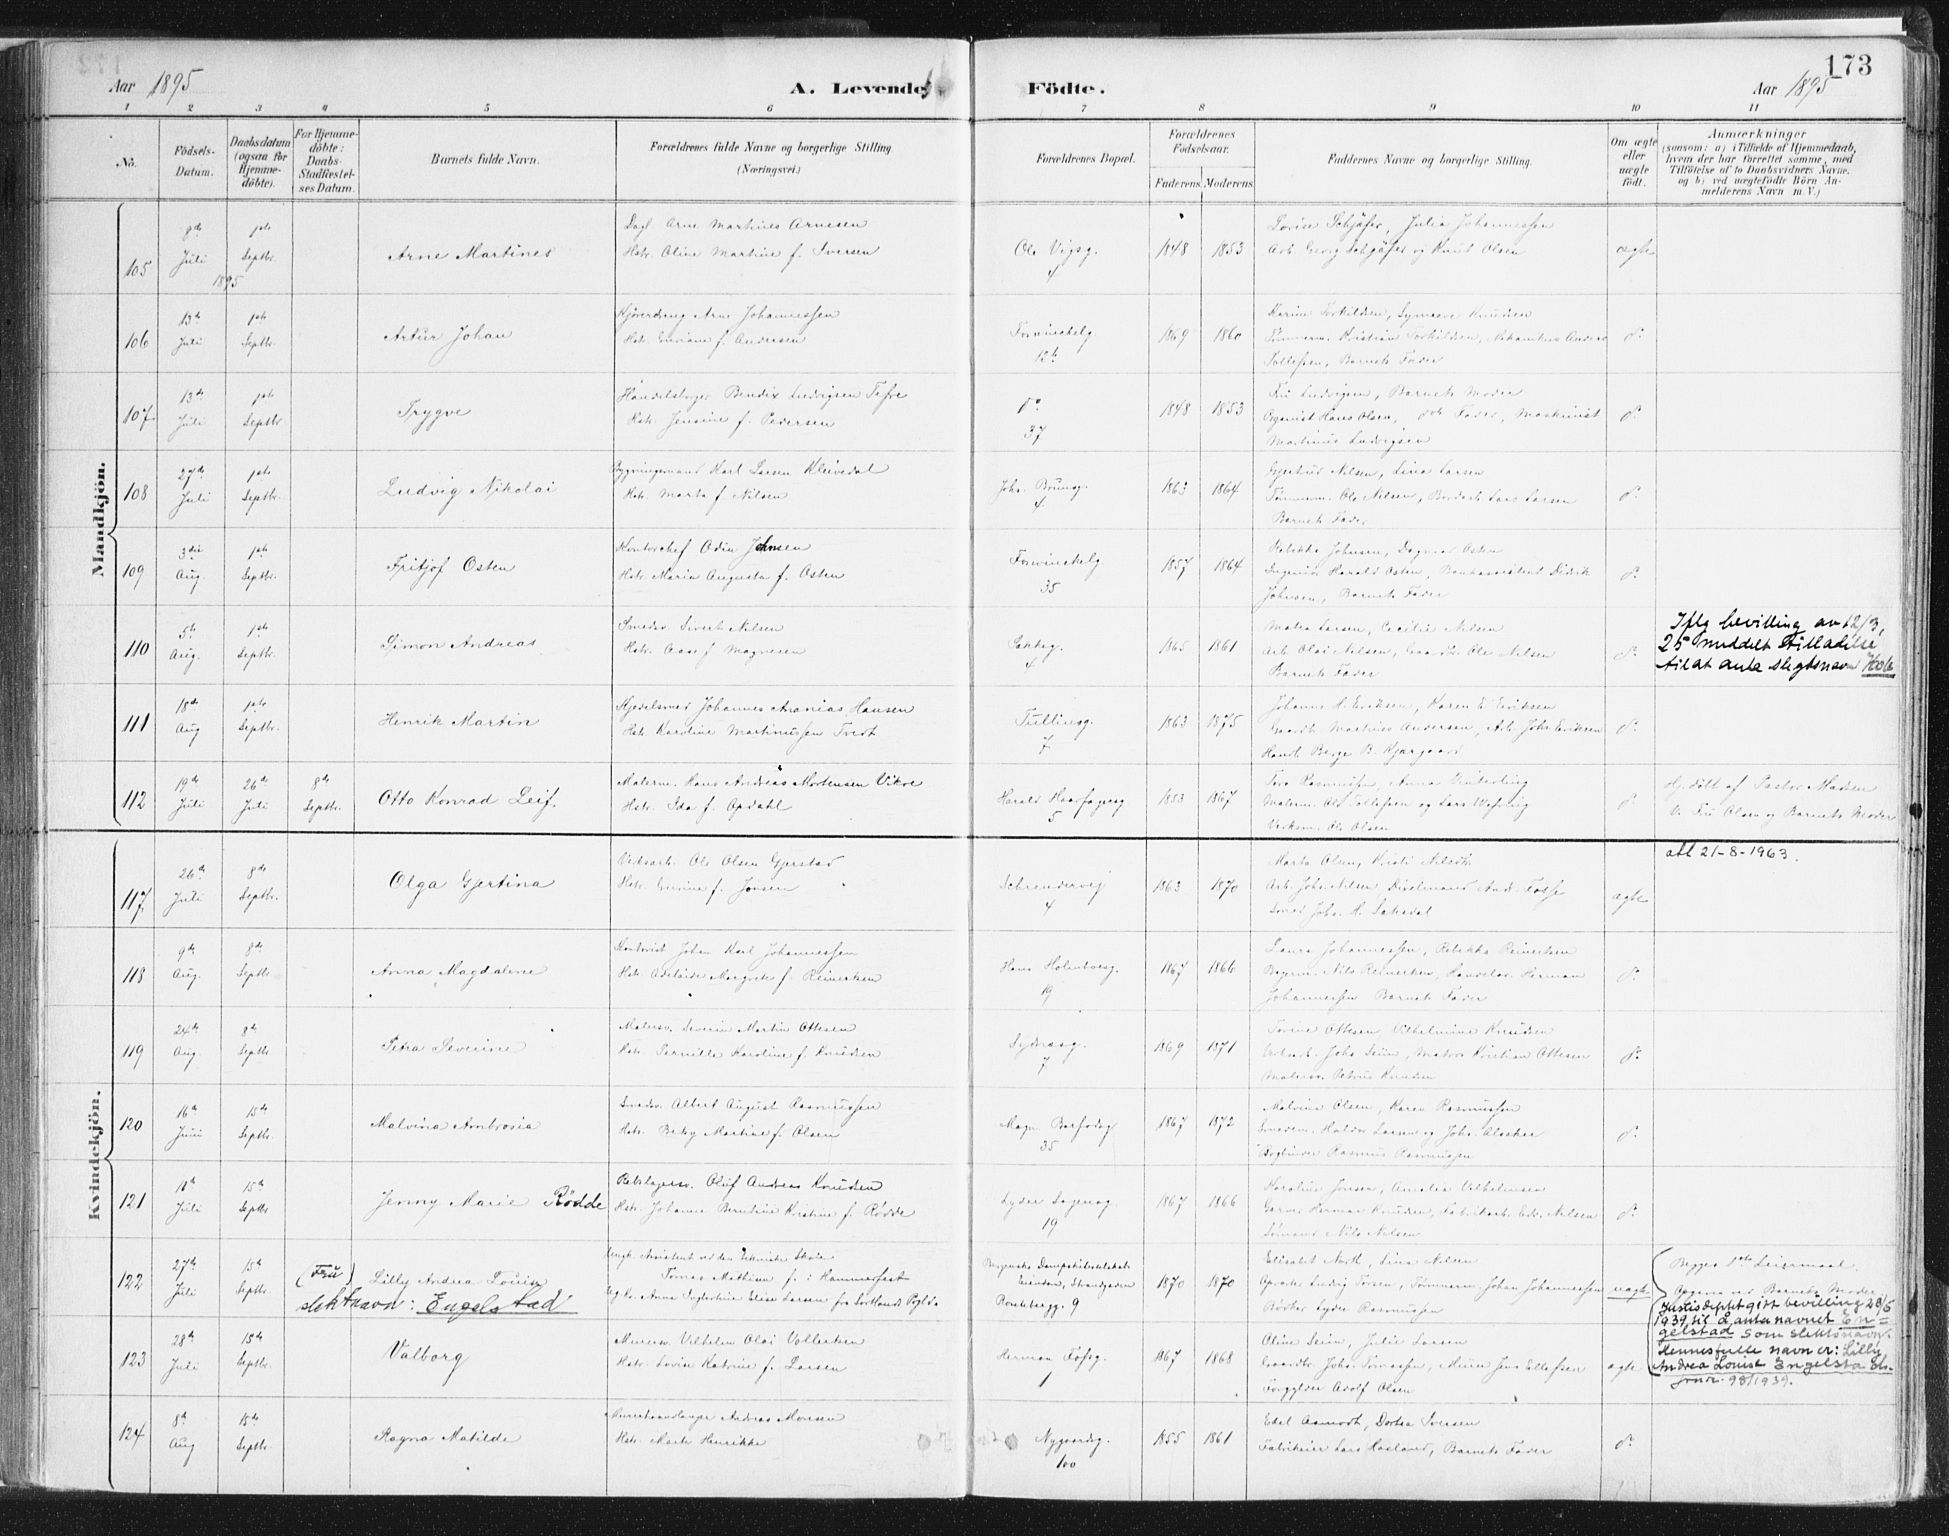 173
Aar 1895
A. Levende Födte.
Aar 1895
1 2 3 4 5 6 7 8 9 10 11
No.
Födsels-
Datum.
Daabsdatum
(ogsaa for
Hjemme-
döbte).
For Hjemme-
döbte:
Daabs-
Stadfæstel-
ses Datum.
Barnets fulde Navn.
Forældrenes fulde Navne og borgerlige Stilling.
(Næringsvei.)
Forældrenes Bopæl.
Forældrenes
Födselsaar.
Faderens. Moderens.
Faddernes Navne og borgerlige Stilling.
Om ægte
eller
uægte
födt.
Anmærkninger
(saasom: a) i Tilfælde af Hjemmedaab,
hvem der har forrettet samme, med
Tilföielse af to Daabsvidners Navne,
og b) ved uægtefödte Börn An-
melderens Navn m. V.)
Mandkjön.
105
9de Juli 1895
1ste Septbr.
Arne Martines
Dagl. Arne Martines Arnesen
Hstr. Oline Martine f. Iversen
Ole Vigsg.
4
1848 1853
Lovise Schjäfer, Julia Johannessen
Arb. Georg Schjäfer og Knut Olsen
ægte
106
13de Juli
1ste Septbr.
Artur Johan
Kjöredreng Arne Johannessen
Hstr. Guriane f. Andersen
Forvinckelg
12b
1869 1860
Karine Torkildsen, Synneve Knudsen
Tömmerm. Kristian Torkildsen, Mekanikus Anders
Tollefsen, Barnets Fader
do.
107
13de Juli
1ste Septbr.
Trygve
Handelsborger Bendix Ludvigsen Tefre
Hstr. Jensine f. Pedersen
do
37
1848 1853
Fru Ludvigsen, Barnets Moder
Organist Hans Olsen, do Fader, Maskinist
Martinus Ludvigsen
do.
108
27de Juli
1ste Septbr.
Ludvig Nikolai
Bygningsmand Karl Larsen Kleivedal
Hstr. Marta f. Nilsen
Johs. Brunsg.
4
1863 1864
Gjertrud Nilsen, Lina Larsen
Tömmerm. Ole Nilsen, Bordarb. Lars Larsen
Barnets Fader
do.
109
3die Aug.
1ste Septbr.
Fritjof Osten
Kontorchef Odin Johnsen
Hstr. Maria Augusta f. Osten
Forvinckelg
35
1857 1864
Rebekka Johnsen, Dagmar Osten
Ingeniör Harald Osten, Bankassistent Didrik
Johnsen, Barnets Fader
do.
110
5te Aug.
1ste Septbr.
Simon Andreas
Smedsv. Sivert Nilsen
Hstr. Aase f. Magnesen
4
1865 1861
Malea Larsen, Cecilie Nilsen
Arb. Olai Nilsen, Gaardb. Ole Nilsen
Barnets Fader
do.
Iflg bevilling av 12/3,
25 meddelt tilladelse
til at anta slegtsnavn
111
18de Aug
1ste Septbr.
Henrik Martin
Kjedelsmed Johannes Ananias Hansen
Hstr. Karoline Martinussen Tvedt
Tullinsg.
7
1863 1875
Johanne H. Eriksen, Karen E. Eriksen
Gaardb. Martines Andersen, Arb. Johs Eriksen
Handl. Berge B. Kjærgaard
do.
112
19de Juli
26de Juli
8de Septbr.
Otto Konrad Leif.
Malerm. Hans Andreas Mortensen Vikre
Hstr. Ida f. Opdahl
Harald Haarfagresg
5
1853 1867
Tora Rasmussen, Anna Unterling
Malerm. Ole Tollefsen og Lars Wefring
Verksm. Ole Olsen
do.
Hj. döbt af Pastor Madsen
V. Fru Olsen og Barnets Moder
Kvindekjön.
117
26de Juli
8de Septbr.
Olga Gjertina
Verksarb. Ole Olsen Gjerstad
Hstr. Gurine f. Jonsen
Schrendervej
4
1863 1870
Marta Olsen, Kristi Nilsdtr.
Arb. Johs. Nilsen, Disselmand And. Fosse
Smed Johs. H.
ægte
att 21-8-1963.
118
9de Aug.
8de Septbr
Anna Magdalene
Kontorist Johan Karl Johannessen
Hstr. Adelaide Margrete f. Reinertsen
Hans Holmboesg.
19
1867 1866
Laura Johannessen, Rebekka Reinertsen
Bogm. Nils Reinertsen, Handelsr. Herman
Johannessen Barnets Fader
do.
119
24de Aug.
8de Septbr
Petra Severine
Malersv. Severin Martin Ottesen
Hstr. Pernille Karoline f. Knudsen
Sydnæsg.
7
1869 1871
Torine Ottesen Vilhelmine Knudsen
Verksarb. Johs Seim, Matros Kristian Ottesen
Malersv. Petrus Knudsen
do.
120
16de Juni
15de Septbr.
Malvina Ambrosia
Smedsv. Albert August Rasmussen
Hstr. Betsy Martine f. Olsen
Magn. Barfodsg
35
1867 1872
Malvina Olsen, Karen Rasmussen
Smedem. Haldor Larsen og Johs. Alsaker
Bogbinder Rasmus Rasmussen
do.
121
18de Juli
15de Septbr
Jenny Marie Rødde
Rebslagersv. Oluf Andreas Knudsen
Hstr. Johanne Berntine Kristine f. Rødde
Lyder Sagensg.
19
1867 1866
Karoline Jensen, Amalia Vilhelmsen
Garver Herman Knudsen, Fabrikarb. Edv. Nilsen
Sömand Nils Nelsen
do.
122
27de Juli
15de Septbr.
(Fru)
Lilly Andrea Louise
slektnavn: Engelstad
Ungk. Assistent ved den tekniske Skole
Tomas Mathison f. i Hammerfest
Bergenske Dampskibsselskabs
Eiendom, Strandgaden
9
1870 1870
Elisabet North, Lina Nilsen
Opvarter Ludvig Torsen, Tömmerm. Johan Johannessen
Bödker Lyder Rasmussen
uægte
Begges 1ste Leiermaal.
Opgave ved Barnets Moder
Justisdeptet gitt bevilling 28/6
1939 til å anta navnet En=
gelstad som slektsnavn.
Hennes fulle navn er: Lilly
Andrea Louise Engelstad
jrnr. 98/1939.
123
28de Juli
15de Septbr.
Valborg
Murersv. Vilhelm Olai Vollertsen
Hstr. Lovise Katrine f. Larsen
Herman Fossg.
1
1867 1868
Oline Seim, Julie Larsen
Gaardbr. Johs. Tomassen, Murer Jens Ellefsen
Forgylder Adolf Olsen
ægte
124
8de Aug
15de Septbr.
Ragna Matilde
Murerhaandlanger Andreas Monsen
Hstr. Marte Henrikke
Nygaardsg.
100
1855 1861
Edel Aamodt, Dortea Iversen
Fabrikeier Lars Hasland, Barnets Fader
do.